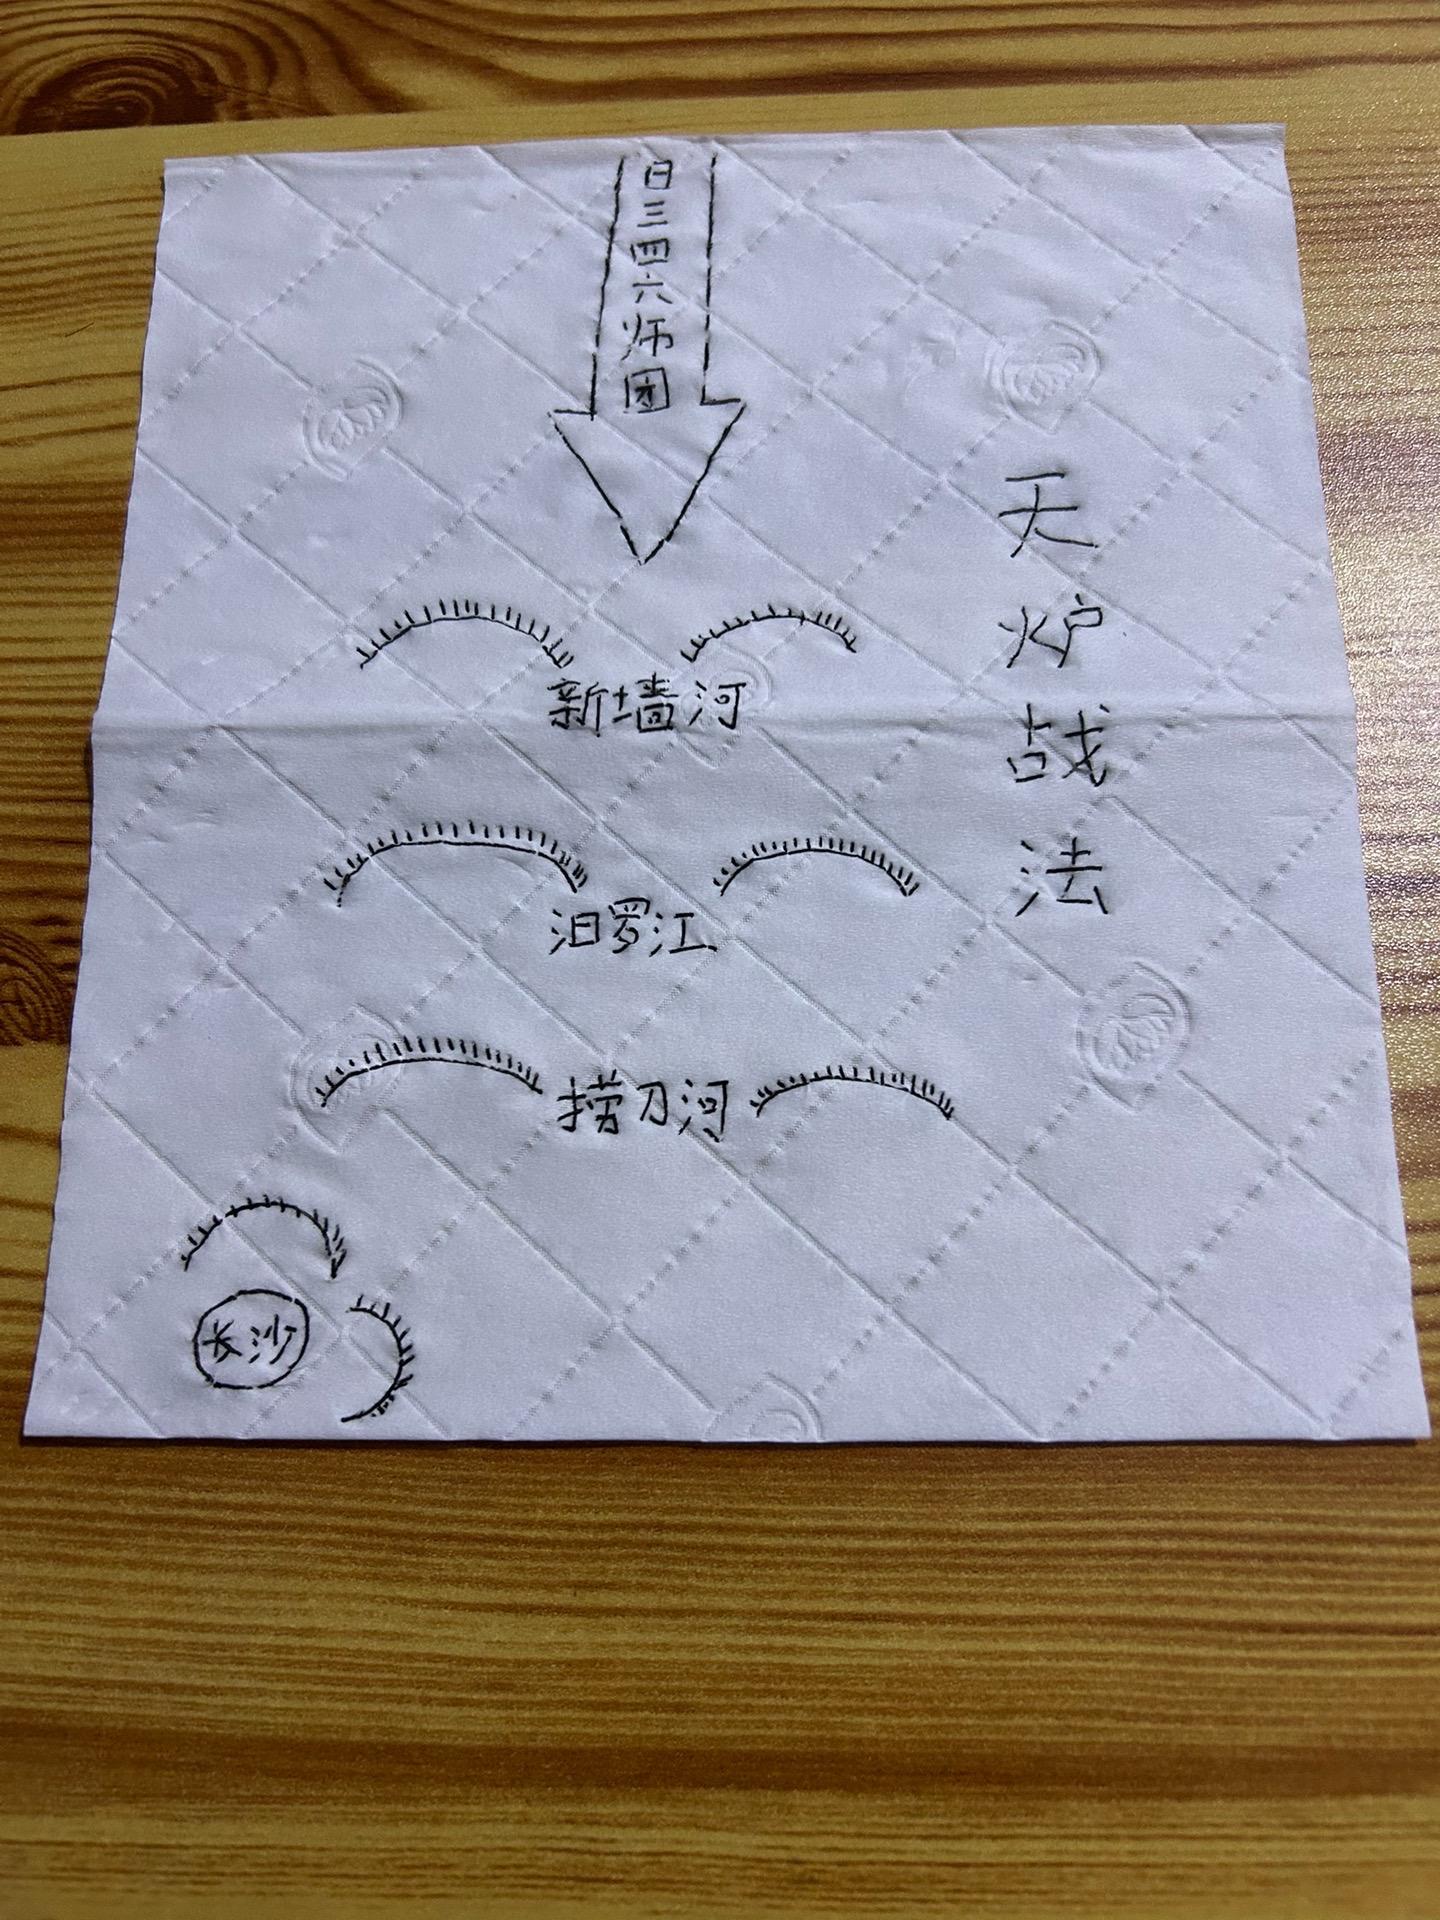 日三四六师团
天炉战法
新墙河
汨罗江
捞刀河
长沙